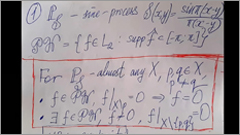 ① P_S - sine-process S(x,y) = sin π(x-y) / π(x-y)
PW = {f ∈ L₂ : supp f̂ ⊂ [-π, π]}
For P_S - almost any X, p,q ∈ X, p ≠ q
• f ∈ PW, f|_{X\p} = 0 ⇒ f = 0
• ∃ f ∈ PW, f ≠ 0, f|_{X\{p,q}} = 0